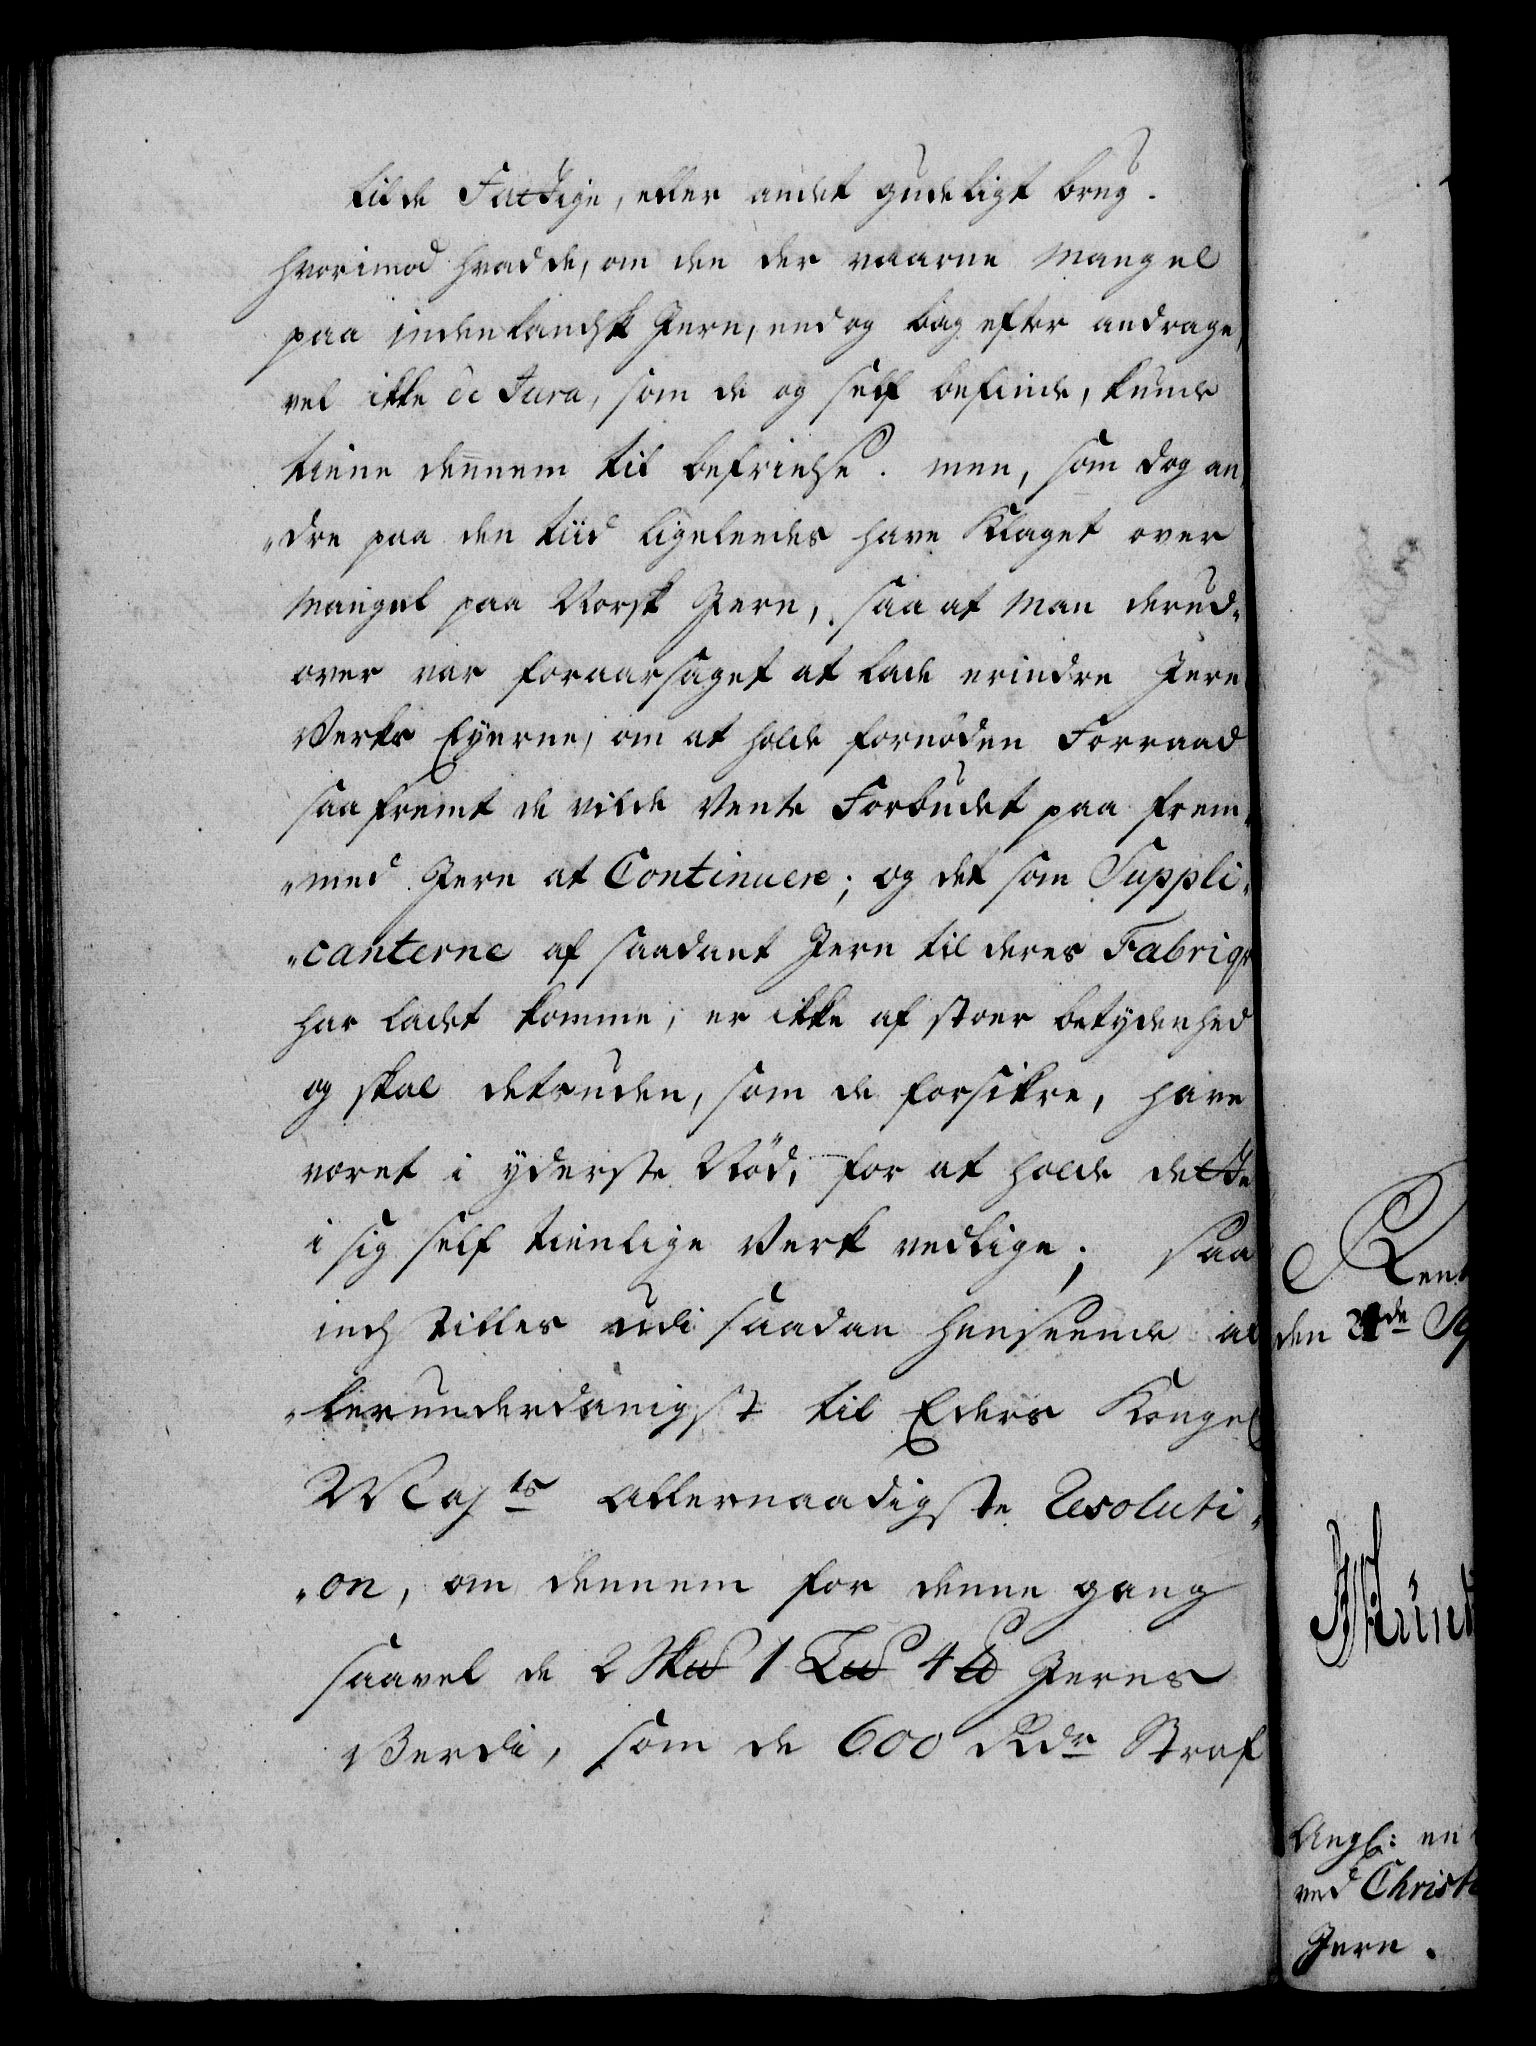 til de Fattige, eller andet gudeligt brug.
hvorimod hvad de, om den der vaarne Mangel
paa indenlandsk Jern, end og bag efter andrage,
vel ikke de Jura, som de og self befinde, kunde
tiene dennem til befrielse. men, som dog an„
„dre paa den tiid ligeledes have klaget over
Mangel paa Norsk Jern, saa at Man derud„
over var foraarsaget at lade erindre Jern
Verks Eyerne, om at holde fornøden Forraad
saafremt de vilde vente Forbudet paa frem„
„med Jern at Continuere; og det som Suppli„
„canterne af saadant Jern til deres Fabriqve
har ladet komme, er ikke af stoer betydenhed
og skal desuden, som de forsikre, have
været i yderste Nød, for at holde dette
i sig self tienlige Verk vedlige; saa
indstilles udi saadan henseende al
„lerunderdanigst til Eders Kongel
Majts allernaadigste Resoluti„
„on, om dennem for denne gang
saavel de 2 Sk℔ 1 L℔ 4 ℔ Jernes
Verdi, som de 600 Rdr Straf
Rent
den 21de
Angl: en
ved Christi
Jern.